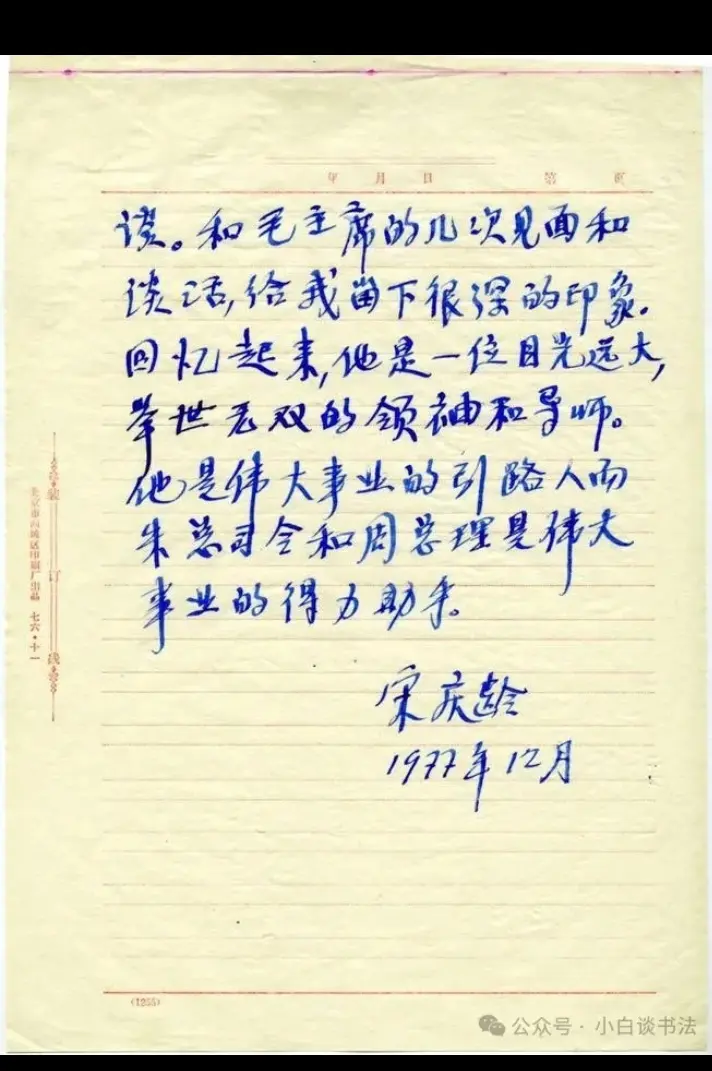 年 月 日 第 页
谈。和毛主席的几次见面和
谈话,给我留下很深的印象.
回忆起来,他是一位目光远大,
举世无双的领袖和导师。
他是伟大事业的引路人而
朱总司令和周总理是伟大
事业的得力助手。
宋庆龄
1977年12月
装 订 线
北京市西城区印刷厂出品 七六·十一
(1255)
公众号·小白谈书法